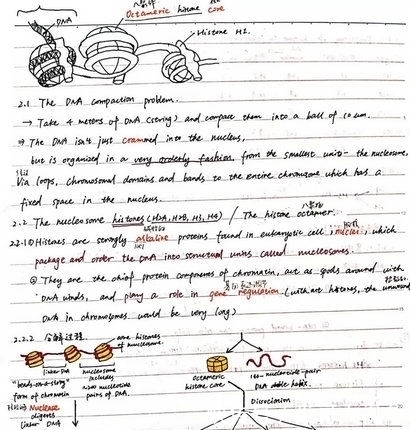 八聚体
Octameric histone core
DNA
Histone H1.
2.1 The DNA compaction problem.
→ Take 4 meters of DNA (string) and compact them into a ball of 10 um.
⇒ The DNA isn't just crammed into the nucleus,
but is organized in a very orderly fashion, from the smallest unit - the nucleosome,
Via loops, chromosomal domains and bands to the entire chromosome which has a
fixed space in the nucleus.
八聚体
2.2 The nucleosome histones (H2A, H2B, H3, H4) / The histone octamer.
2.2.1 ① Histones are strongly alkaline proteins found in eukaryotic cell nuclei, which
package and order the DNA into structural units called nucleosomes.
② They are the chief protein components of chromatin, act as around with
DNA winds, and play a role in gene regulation (without histones, the unwound
DNA in chromosomes would be very long)
2.2.2
core histones
of nucleosome.
linker DNA
nucleosome
includes
nucleotide
pairs of DNA.
"beads-on-a-string"
form of chromatin
Nuclease
digests
linker DNA
octameric
histone core
nucleotide-pair
DNA double helix.
Dissociation